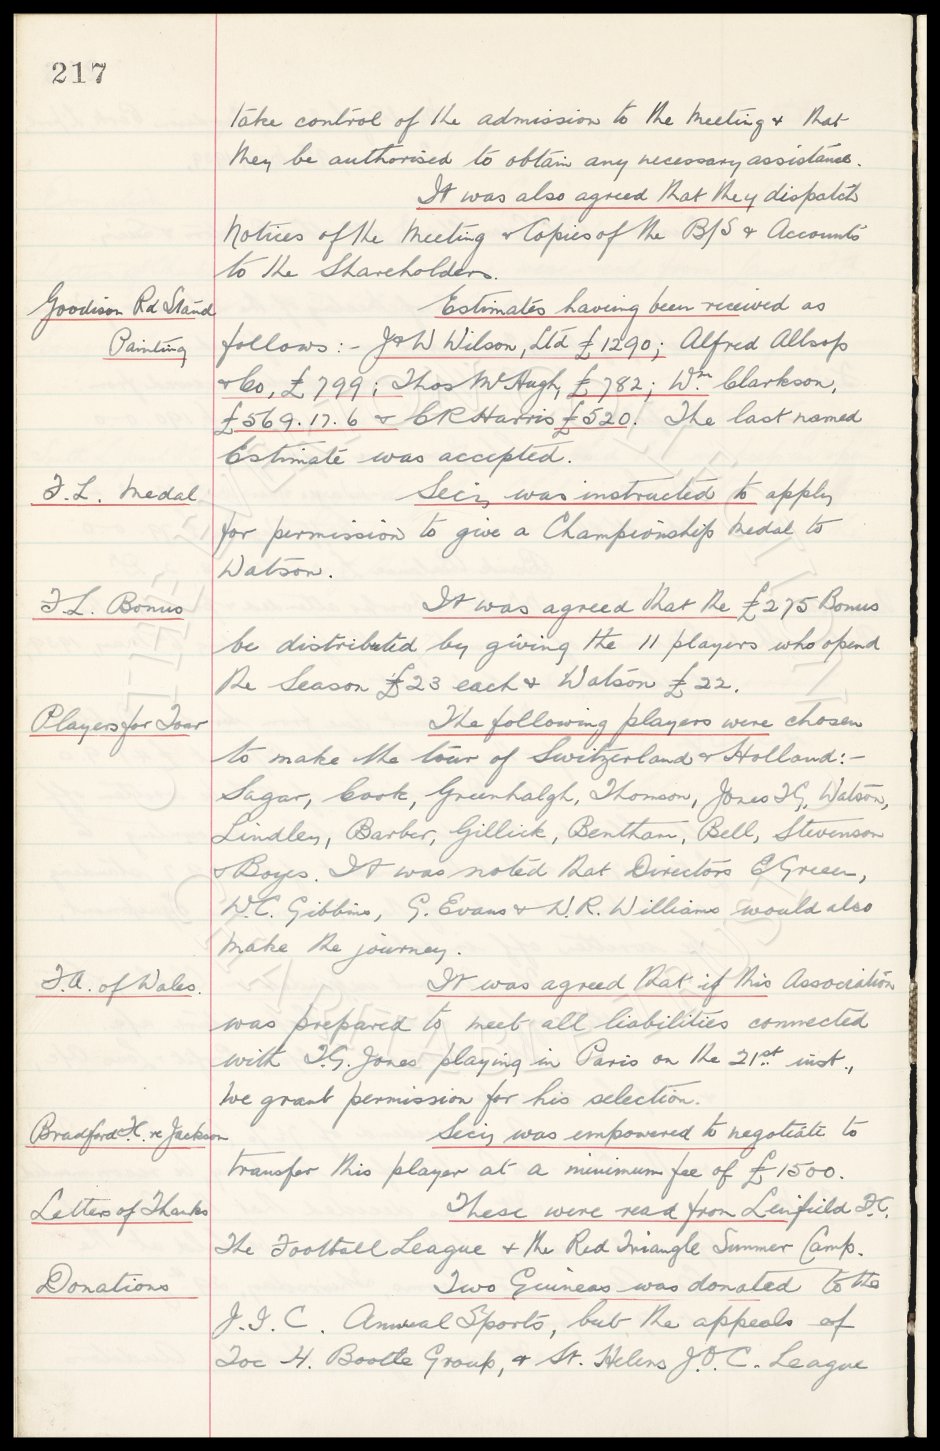 217
take control of the admission to the meeting & that
they be authorised to obtain any necessary assistance.
It was also agreed that they dispatch
Notices of the Meeting & Copies of the B/S & Accounts
to the Shareholders.
Goodison Rd Stand Estimates having been received as
Painting follows :- J & W Wilson, Ltd £1290; Alfred Allsop
& Co, £799; Thos McHugh, £782; Wm Clarkson,
£569.17.6 & C R Harris £520. The last named
Estimate was accepted.
F.L. Medal Secy was instructed to apply
for permission to give a Championship Medal to
Watson.
F.L. Bonus It was agreed that the £275 Bonus
be distributed by giving the 11 players who opend
the Season £23 each & Watson £22.
Players for Tour The following players were chosen
to make the tour of Switzerland & Holland:-
Sagar, Cook, Greenhalgh, Thomson, Jones TG, Watson,
Lindley, Barber, Gillick, Bentham, Bell, Stevenson
& Boyes. It was noted that Directors E Green,
W.C. Gibbins, G. Evans & W.R. Williams would also
make the journey.
F.A. of Wales. It was agreed that if this Association
was prepared to meet all liabilities connected
with T.G. Jones playing in Paris on the 21st inst.,
we grant permission for his selection.
Bradford F.C. re Jackson Secy was empowered to negotiate to
transfer this player at a minimum fee of £1500.
Letters of Thanks These were read from Linfield F.C.
The Football League & the Red Triangle Summer Camp.
Donations Two Guineas was donated to the
J.I.C. Annual Sports, but the appeals of
Toc H. Bootle Group, & St. Helens J.O.C. League